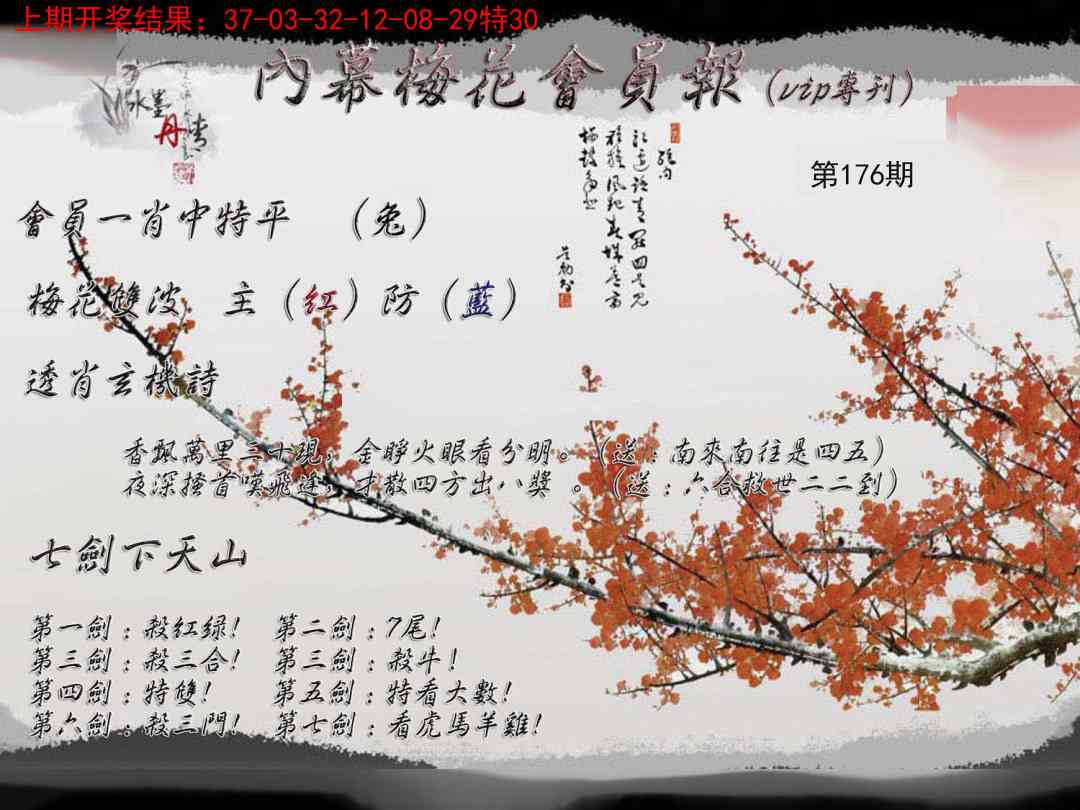 上期开奖结果：37-03-32-12-08-29特30
內幕梅花會員報（vip專刊）
水墨
丹青
第176期
會員一肖中特平 （兔）
梅花雙波 主（红）防（藍）
透肖玄機詩
香飄萬里三十現，金睜火眼看分明。（送：南來南往是四五）
夜深搔首嘆飛蓬，才散四方出八獎 。（送：六合救世二二到）
七劍下天山
第一劍：殺紅绿！ 第二劍：7尾！
第三劍：殺三合！ 第三劍：殺牛！
第四劍：特雙！ 第五劍：特看大數！
第六劍：殺三門！ 第七劍：看虎馬羊雞！